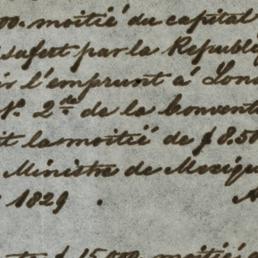 00. moitié du capital
safert par la Republi
l'emprunt à Lon
N.º 2.de de la Convent
it la moitié de $ 8.50
Ministre de Mexiq
1829.
$ 15,000. moitié